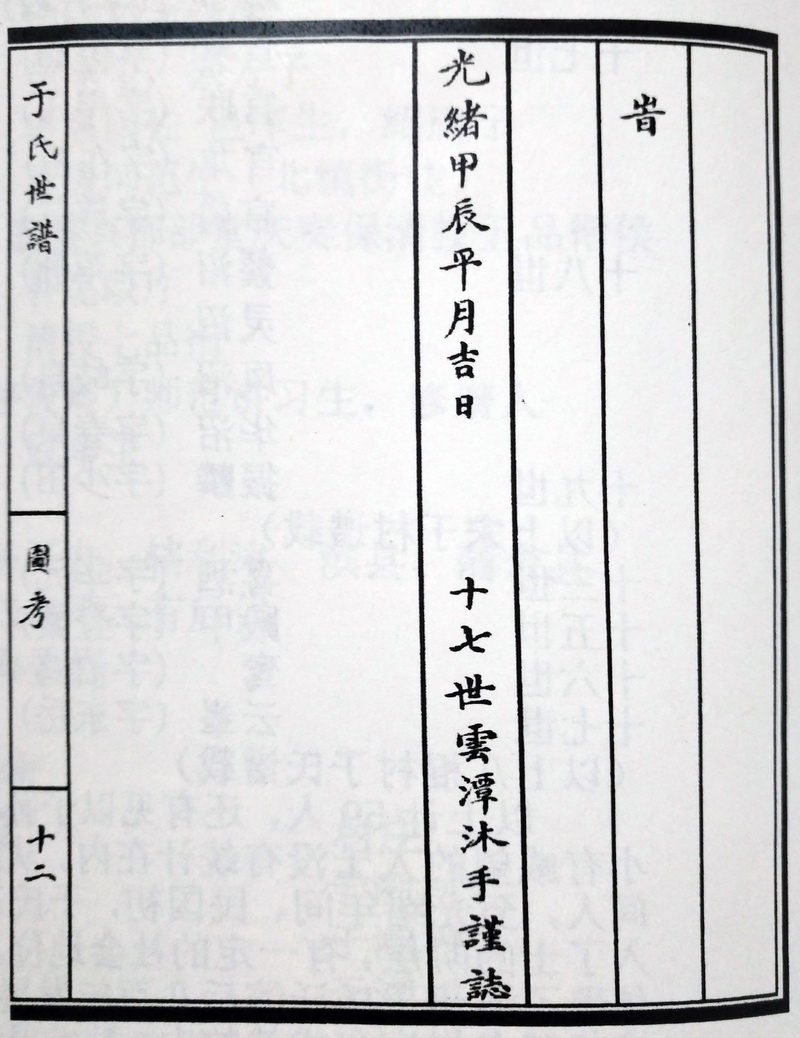 旹
光緒甲辰平月吉日 十七世雲潭沐手謹誌
于氏世譜
圖考
十二